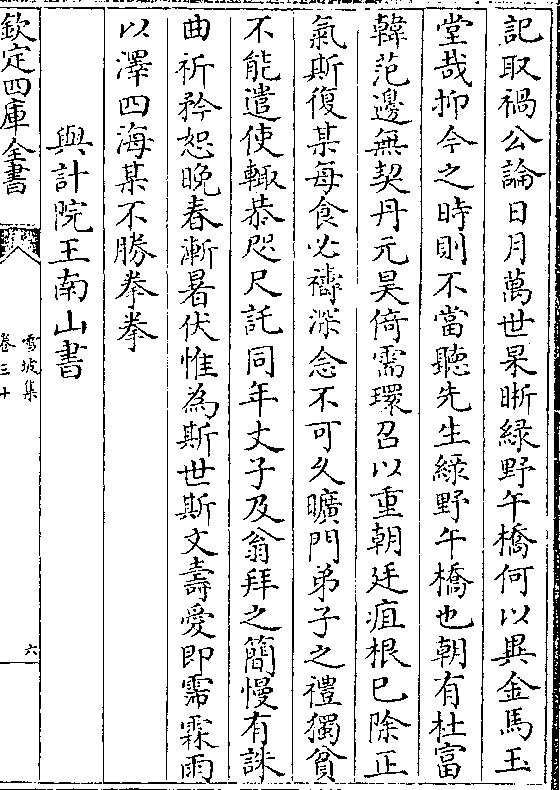 記取禍公論日月萬世杲晣緑野午橋何以異金馬玉
堂哉抑今之時則不當聽先生緑野午橋也朝有杜富
韓范邊無契丹元昊倚需環召以重朝廷疽根已除正
氣斯復某每食必禱深念不可久曠門弟子之禮獨貧
不能遣使輙恭咫尺託同年丈子及翁拜之簡慢有誅
曲祈矜恕晩春漸暑伏惟為斯世斯文壽愛即需霖雨
以澤四海某不勝拳拳
與計院王南山書
欽定四庫全書
雪坡集
卷三十
六